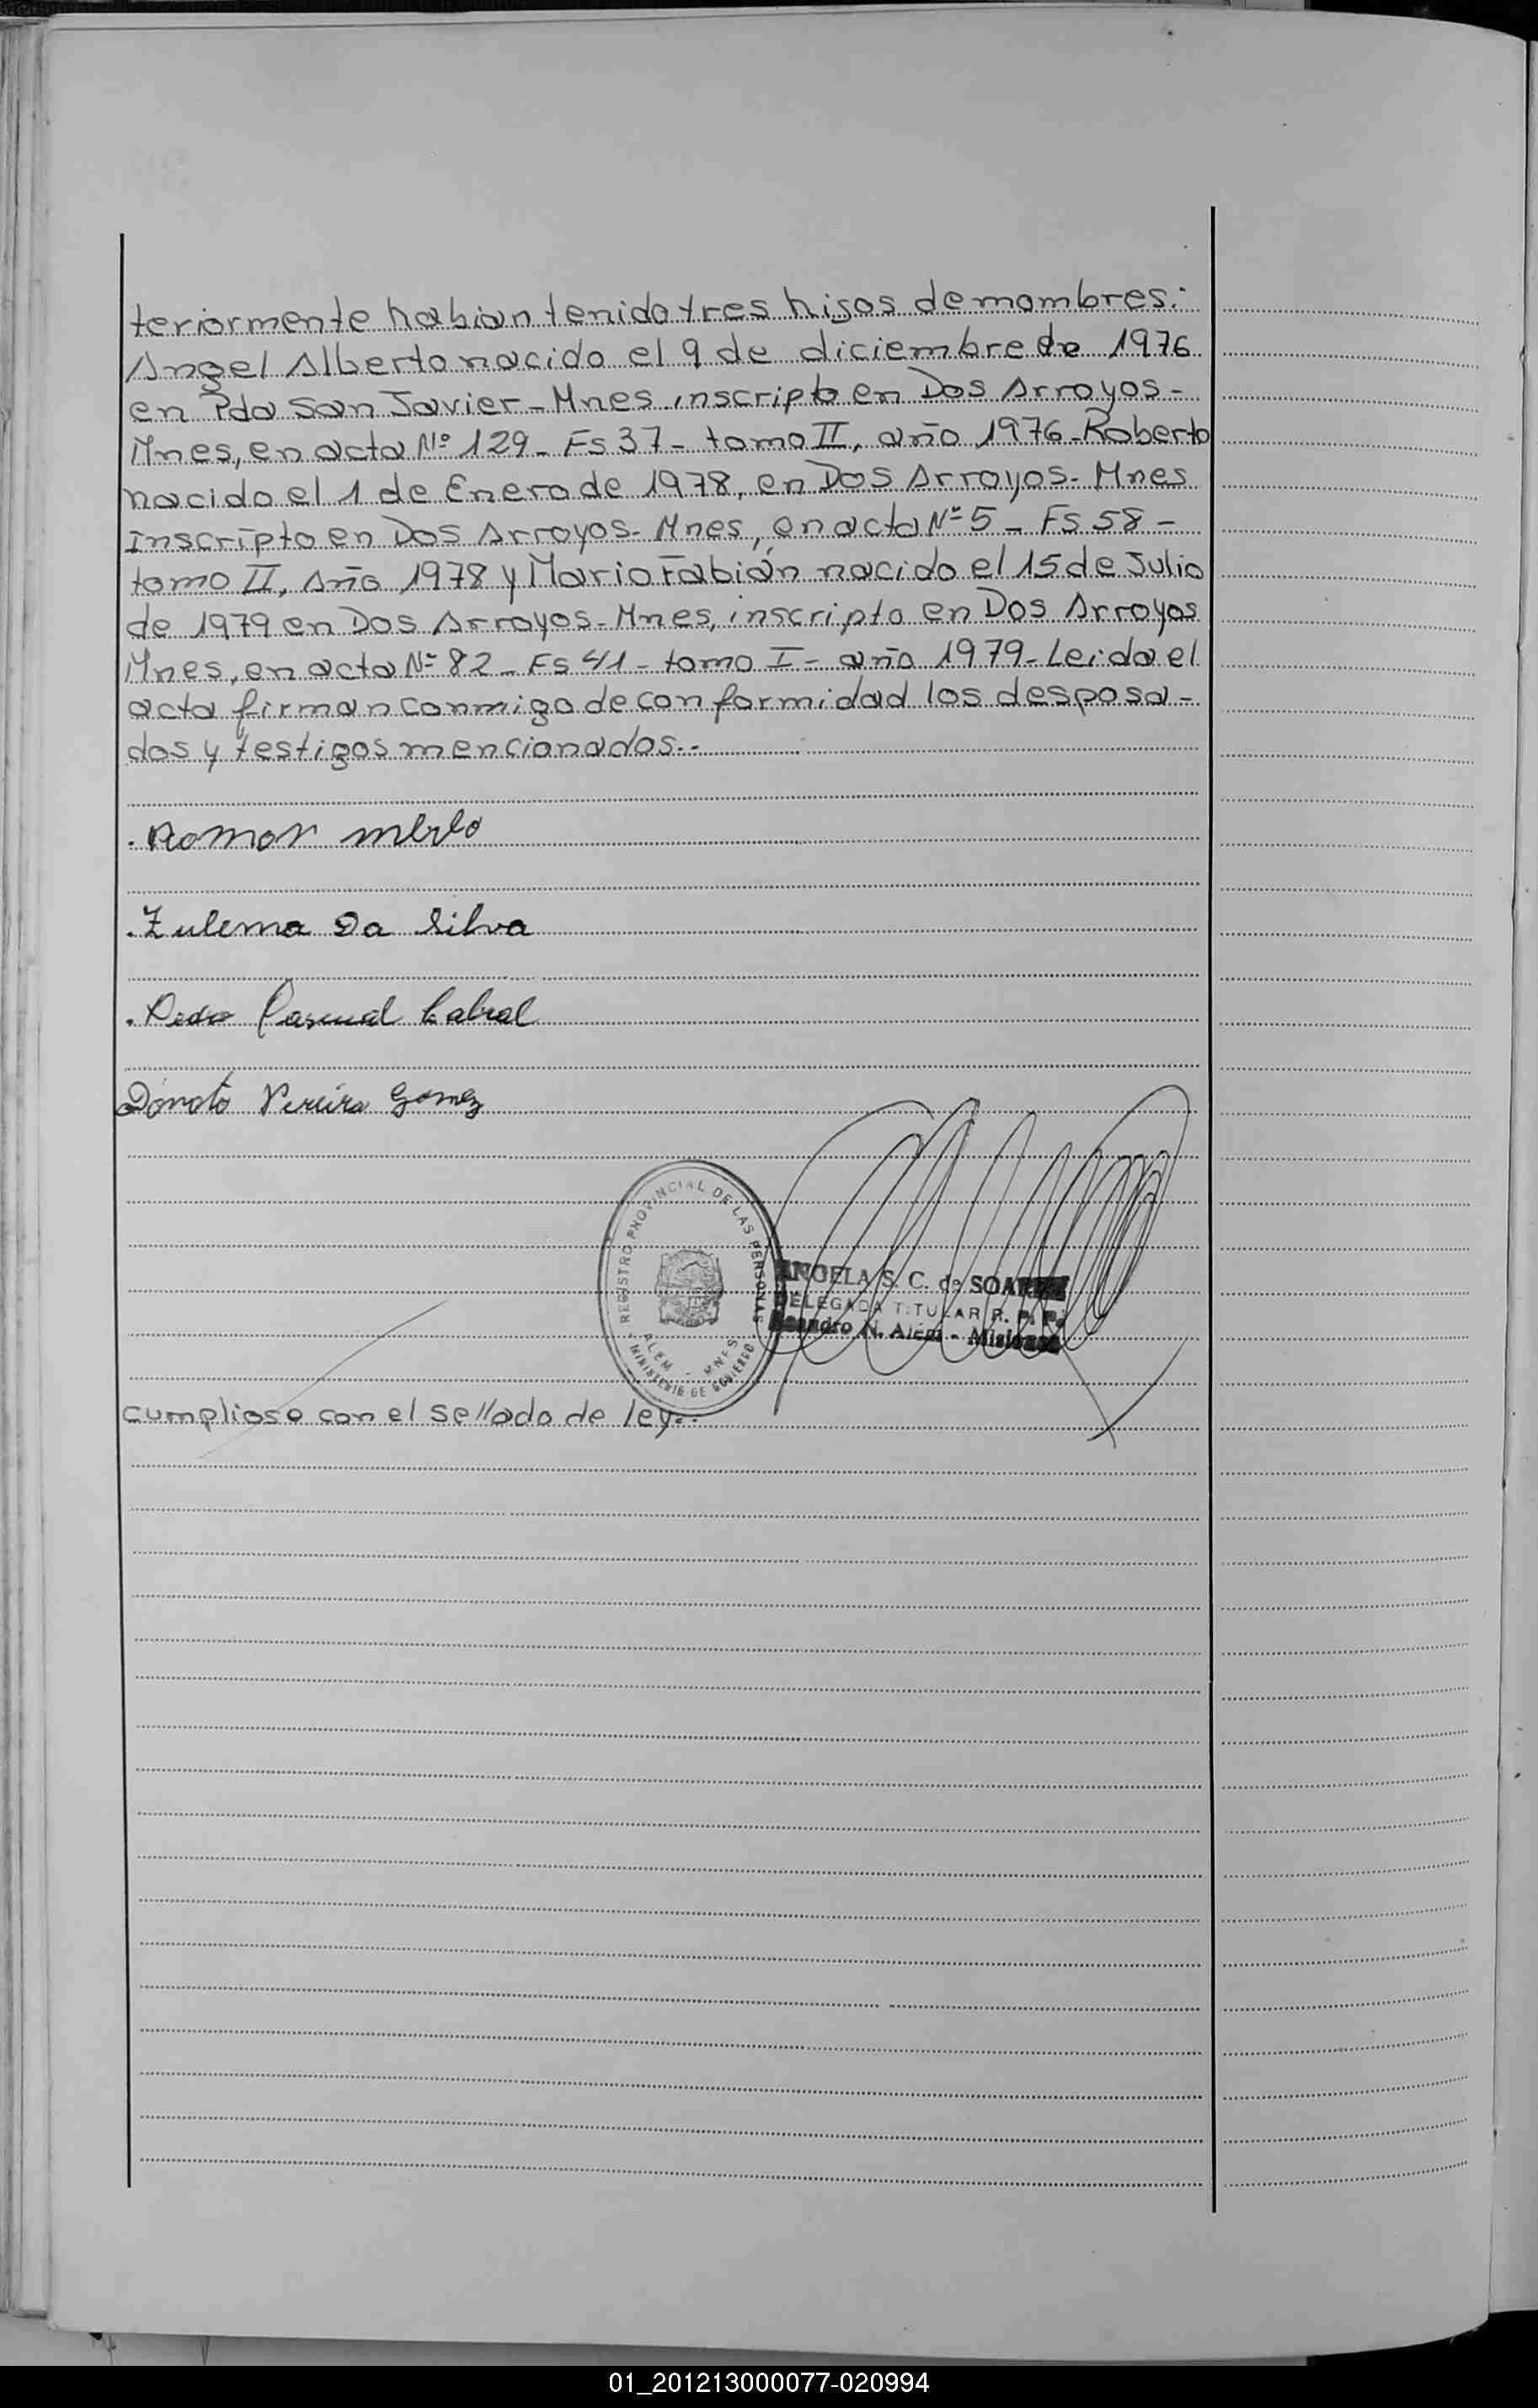 teriormente habian tenido tres hijos de mombres:
Angel Alberto nacido el 9 de diciembre de 1976
en Pda San Javier - Mnes inscripto en Dos Arroyos -
Mnes, en acta Nº 129 - Fs 37 - tomo II, año 1976 - Roberto
nacido el 1 de Enero de 1978, en Dos Arroyos - Mnes
Inscripto en Dos Arroyos - Mnes, en acta Nº 5 - Fs 58 -
tomo II, Año 1978 y Mario Fabián nacido el 15 de Julio
de 1979 en Dos Arroyos - Mnes, inscripto en Dos Arroyos
Mnes, en acta Nº 82 - Fs 41 - tomo I - año 1979 - Leida el
acta firman conmigo de conformidad los desposa -
dos y testigos mencionados. -
Ramon Merlo
Zulema Da Silva
Pedro Pascual Cabral
Donato Pereira Gomez
REGISTRO PROVINCIAL DE LAS PERSONAS
ALEM - MNES.
MINISTERIO DE GOBIERNO
ANGELA S. C. de SOAREZ
DELEGADA TITULAR R. P. P.
Leandro N. Alem - Misiones
cumpliose con el sellado de ley. -
01_201213000077-020994